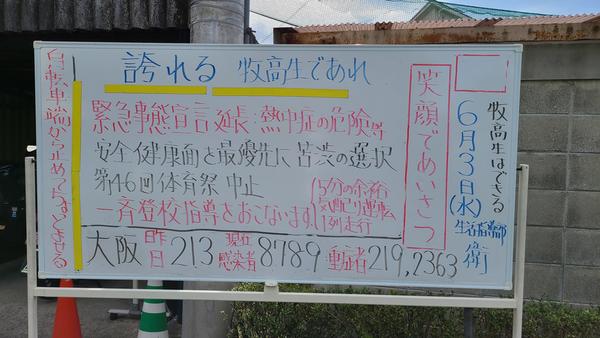 誇れる 牧高生であれ
緊急事態宣言延長・熱中症の危険等
安全健康面を最優先に苦渋の選択
第46回体育祭 中止
一斉登校指導をおこないます
5分の余裕
気配り運転
1列走行
大阪 昨日 213 現在感染者 8789 219,2363
笑顔であいさつ
牧高生はできる
6月3日(水)
生活指導部 衛